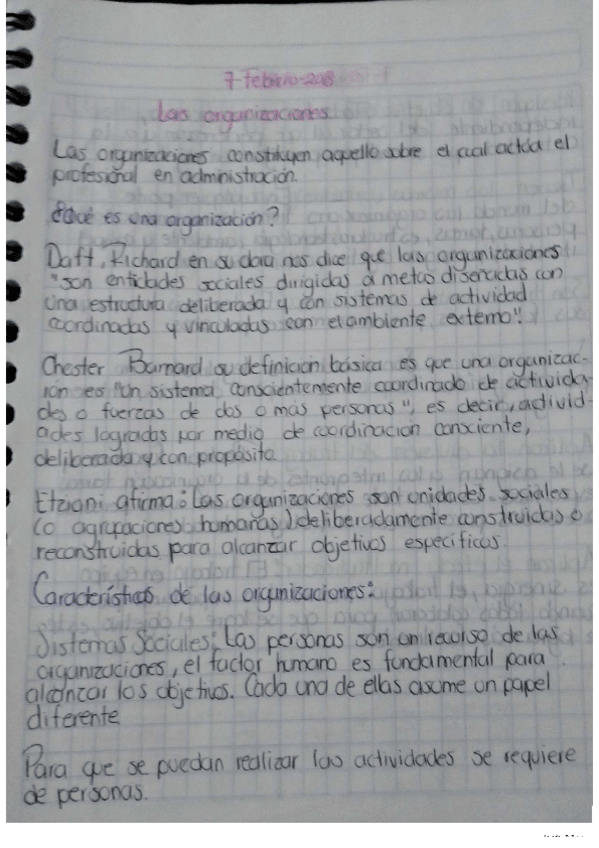 7-febrero-2018
Las organizaciones
Las organizaciones constituyen aquello sobre el cual actúa el
profesional en administración.
¿Qué es una organización?
Daft, Richard en su obra nos dice que las organizaciones
"son entidades sociales dirigidas a metas diseñadas con
una estructura deliberada y con sistemas de actividad
coordinados y vinculados con el ambiente externo".
Chester Barnard su definición básica es que una organizac-
ión es "un sistema conscientemente coordinado de activida-
des o fuerzas de dos o más personas", es decir, activid-
ades logradas por medio de coordinación consciente,
deliberada y con propósito.
Etzioni afirma: Las organizaciones son unidades sociales
(o agrupaciones humanas) deliberadamente construidas o
reconstruidas para alcanzar objetivos específicos.
Características de las organizaciones:
Sistemas Sociales: Las personas son un recurso de las
organizaciones, el factor humano es fundamental para
alcanzar los objetivos. Cada una de ellas asume un papel
diferente
Para que se puedan realizar las actividades se requiere
de personas.